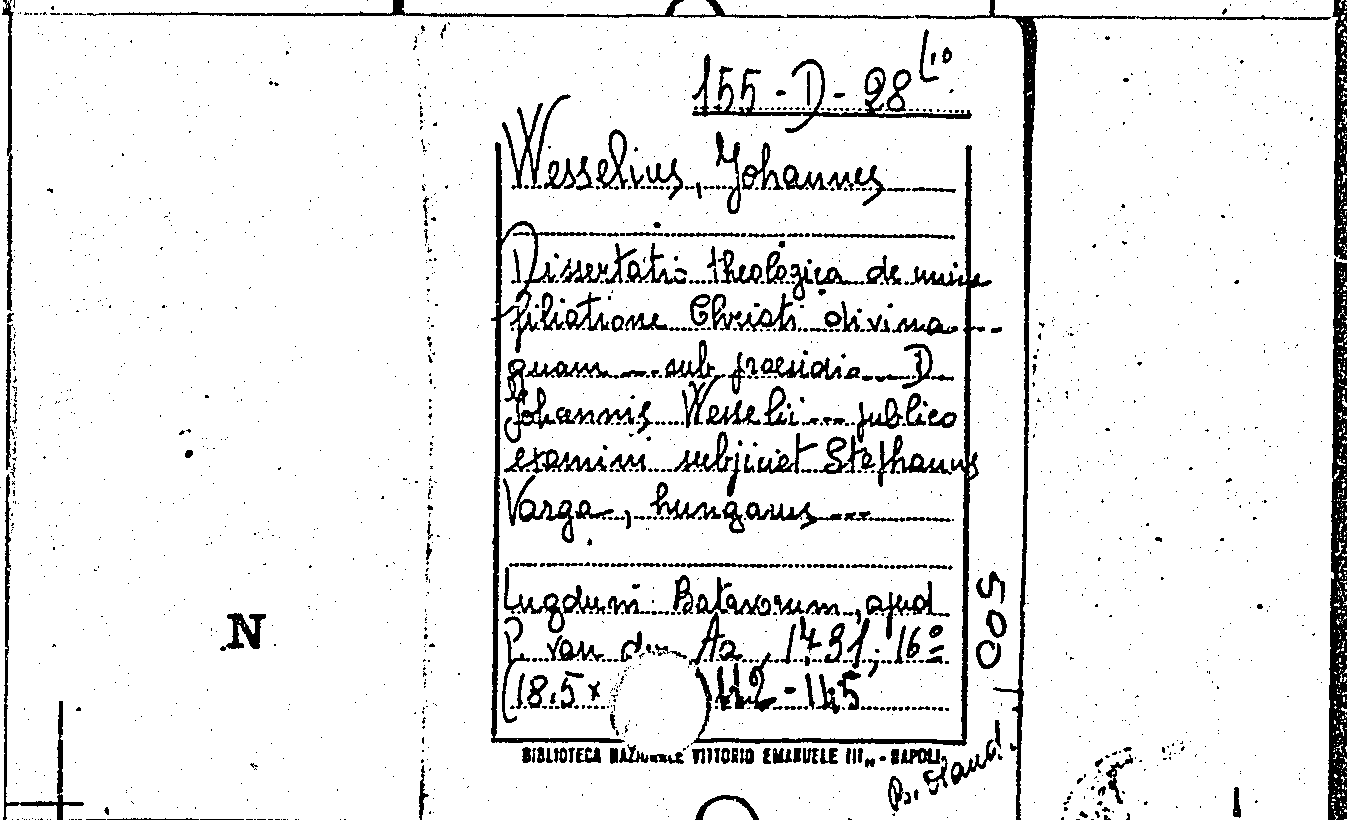 155-D-28 (10
Wesselius, Johannes
Dissertatio theologica de unica
filiatione Christi divina ---
quam --- sub praesidio --- D.
Johannis Wesselii --- publico
examini subjiciet Stephanus
Varga, hungarus ---
Lugduni Batavorum, apud
P. van der Aa, 1731; 16º
(18.5x ) 112-115
BIBLIOTECA NAZIONALE VITTORIO EMANUELE III - NAPOLI
500
N